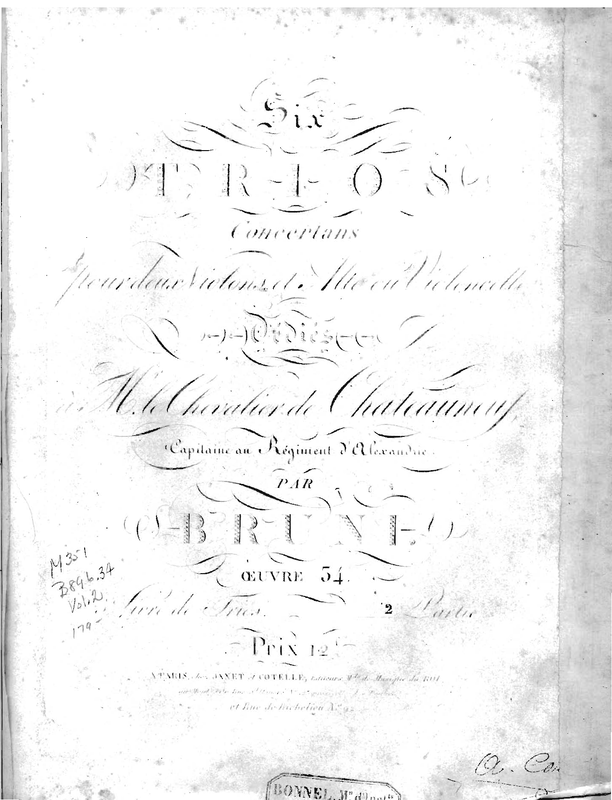 Six
TRIOS
Concertans
pour deux Violons et Alto ou Violoncelle
Dédiés
à Mr. le Chevalier de Chateauneuf
Capitaine au Régiment d'Alexandrie.
PAR
BRUNI
ŒUVRE 34.
Livre de Trios. 2 Partie
Prix 12
A PARIS, chez JANET et COTELLE, Editeurs Mds. de Musique du ROI,
et Rue de Richelieu No. 92
M351
B896.34
Vol. 2
BONNEL, Md. de
A. Co